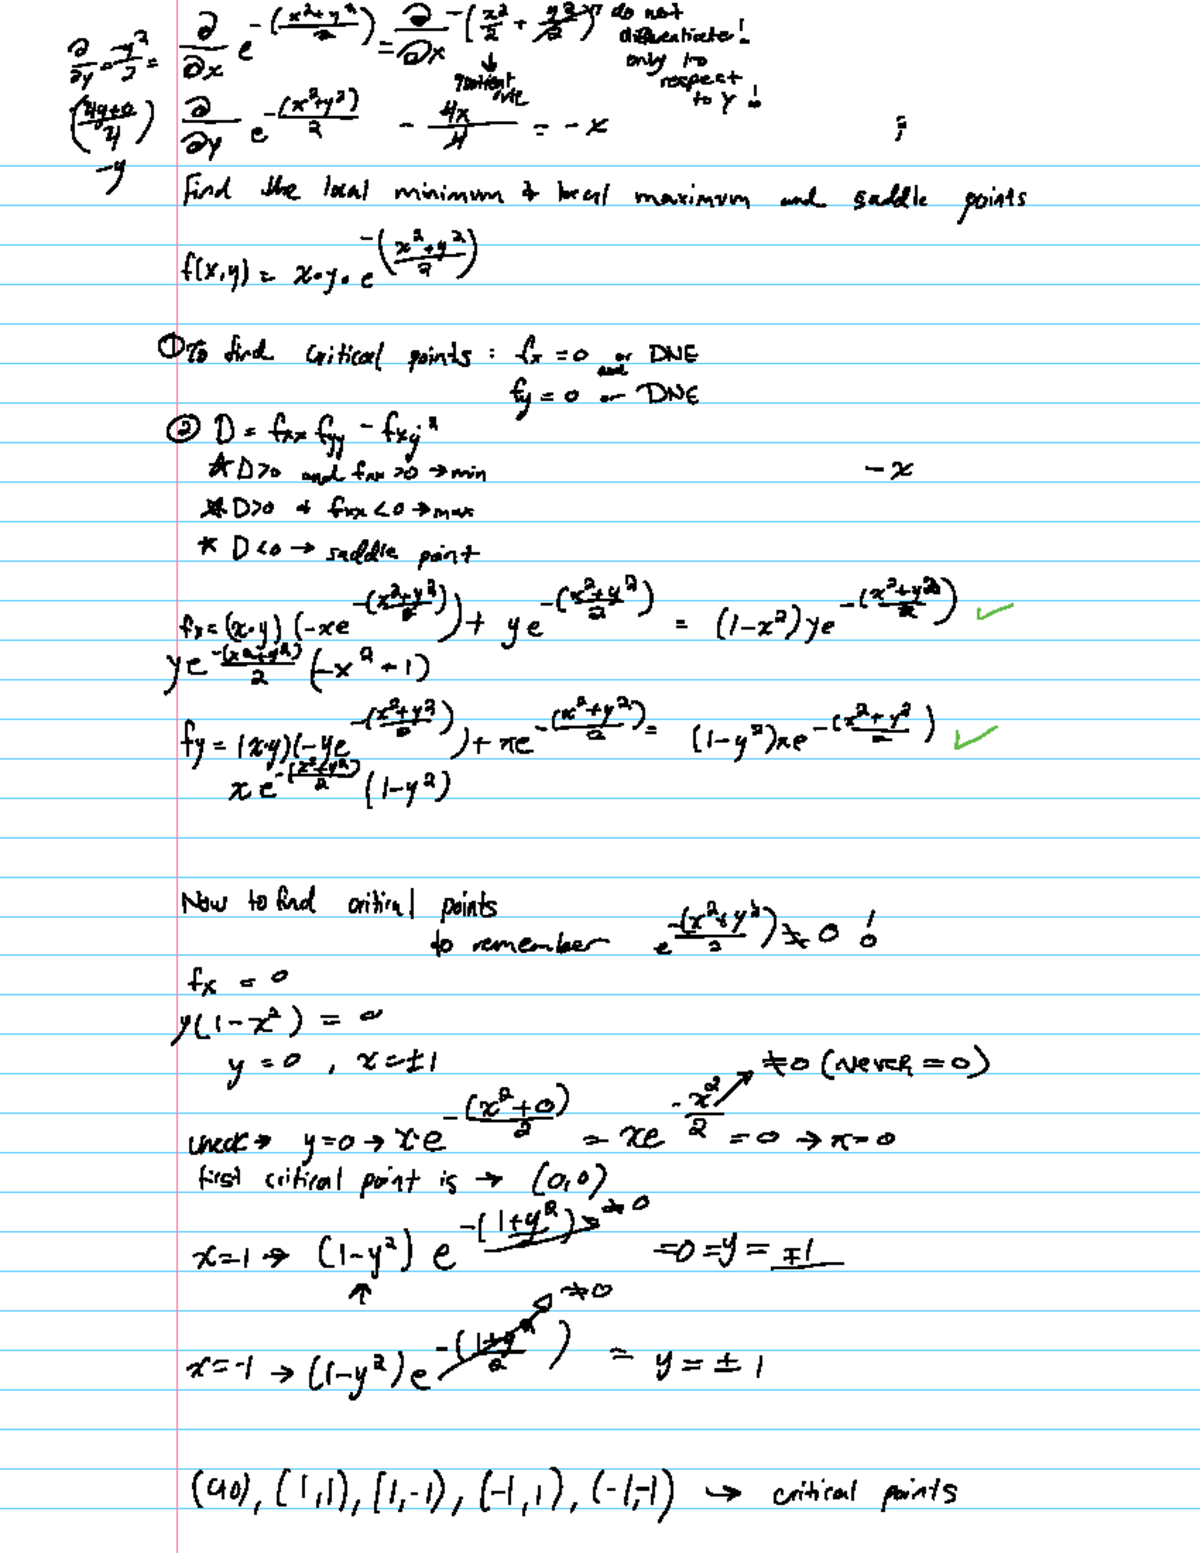 ∂/∂x e^-((x²+y²)/2) = ∂/∂x -(x²/2 + y²/2) → do not differentiate! only to respect to y!
↓ quotient rule
∂/∂y - y²/2 =
∂/∂y e^-((x²+y²)/2) - 4x/4 = -x
-y
Find the local minimum & local maximum and saddle points
f(x,y) = x·y·e^-((x²+y²)/2)
① To find critical points : fx = 0 or DNE
and
fy = 0 or DNE
② D = fxx fyy - fxy²
* D>0 and fxx >0 → min
-x
* D>0 & fxx <0 → max
* D<0 → saddle point
fx = (x·y)(-xe^-((x²+y²)/2)) + ye^-((x²+y²)/2) = (1-x²)ye^-((x²+y²)/2) ✓
ye^-((x²+y²)/2) (-x²+1)
fy = (x·y)(-ye^-((x²+y²)/2)) + xe^-((x²+y²)/2) = (1-y²)xe^-((x²+y²)/2) ✓
xe^-((x²+y²)/2) (1-y²)
Now to find critical points
to remember e^-((x²+y²)/2) ≠ 0 !
fx = 0
y(1-x²) = 0
y = 0 , x = ±1
≠0 (never = 0)
check → y=0 → x·e^-((x²+0)/2) = xe^(-x²/2) = 0 → x = 0
first critical point is → (0,0)
x=1 → (1-y²) e^-((1+y²)/2) → ≠0 =0 = y = ∓1
↑
x=-1 → (1-y²)e^-((1+y²)/2) → ≠0 = y = ±1
(0,0), (1,1), (1,-1), (-1,1), (-1,-1) → critical points